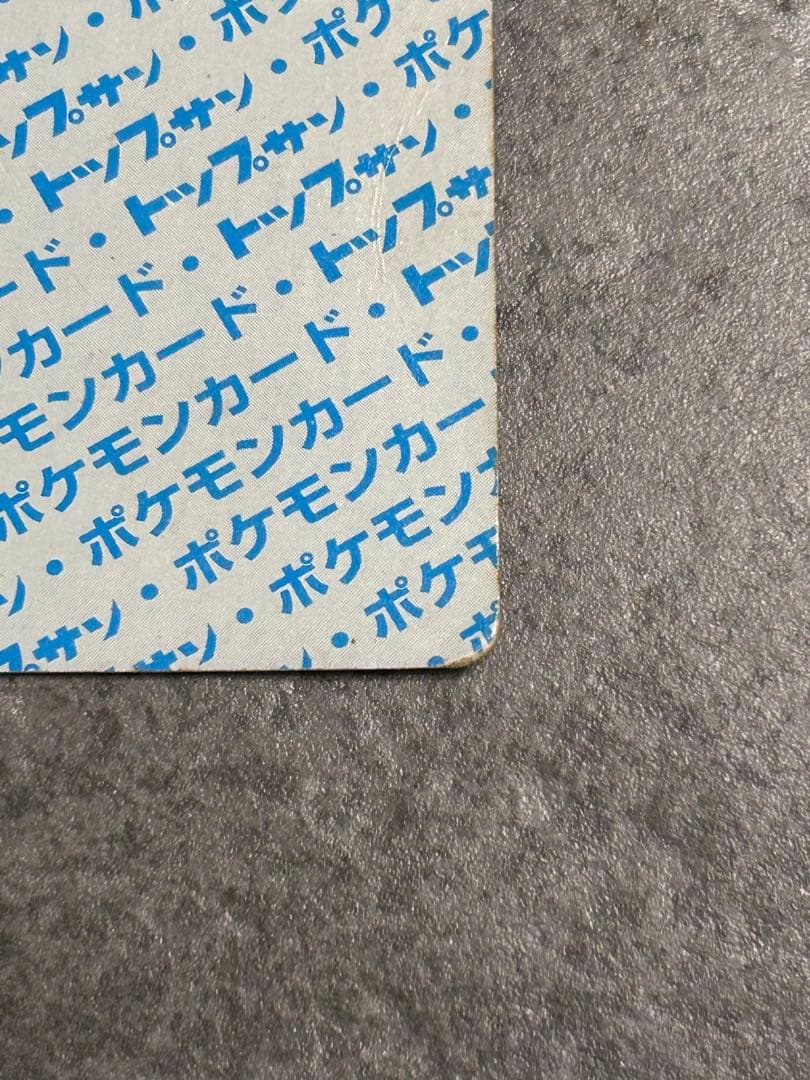 サン
ップサン・ポ
・トップサン・ポケ
ード・トップサン・ポケ
カード・トップサン・
モンカード・トップサ
ポケモンカード・トッ
ン・ポケモンカード・
プサン・ポケモンカー
サン・ポケモンカ
・ポケモ
・ポ